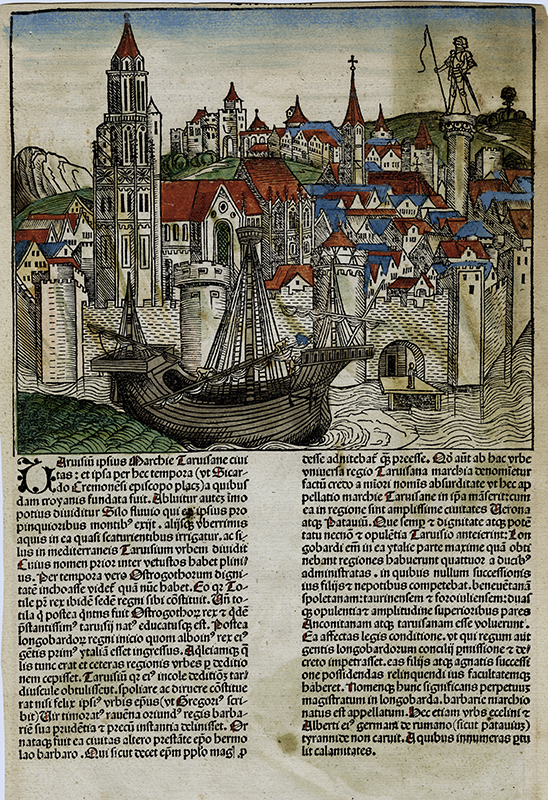 Taruisiũ ipsius Marchie Tarusane ciui
tas: et ipsa per hec tempora (vt Sicar
do Cremonẽsi episcopo placꝫ) a quibus
dam troyanis fundata fuit. Abluitur autẽ imo
potius diuiditur Silo fluuio qui ex ipsius pro
pinquioribus montibꝰ exijt. alijsqꝫ vberrimis
aquis in ea quasi scaturientibus irrigatur. ac si
lus in mediterraneis Taruisium vrbem diuidit
Cuius nomen prior inter vetustos habet plini
us. Per tempora vero Ostrogothorum digni
tatẽ inchoasse videꝉ quã nũc habet. Eo qꝫ To
tile pr̃ rex ibidẽ sedẽ regni sibi cõstituit. Un to
tila q̃ postea q̃ntus fuit Ostrogothoꝝ rex ⁊ qdẽ
p̃stantissimꝰ tarusij natꝰ educatusqꝫ est. Postea
longobardoꝝ regni inicio quom alboinꝰ rex ei
gẽtis primꝰ ytaliã esset ingressus. Adiicamqꝫ q
lis tunc erat et ceteras regionis vrbes ꝑ deditio
nem cepisset. Tarusiũ qꝫ ei incole deditiõẽs tar
diuscule obtulissent. spoliare ac diruere cõstitue
rat nisi felix ipsiꝰ vrbis epus (vt Gregoriꝰ scri
bit) Uir timoratꝰ rauẽna oriundꝰ regis barba
riẽ sua prudẽtia ⁊ precũ instantia deliniisset. Or
natacqꝫ fuit ea ciuitas altero prestãte epõ hermo
lao barbaro. Qui sicut decet epm̃ ppl̃o mag ꝓ
desse adnitebat̃ qꝫ preesse. Qd aũt ab hac vrbe
vniuersa regio Tarusana marchia denomiet̃ur
factũ credo a miori nomis absurditate vt hec ap
pellatio marchie Tarusane in ipã maserit: cum
ea in regione sint amplissime ciuitates Uerona
atqꝫ Patauiũ. Que semp ⁊ dignitate atqꝫ potẽ
tatu necnõ ⁊ opulẽtia Tarusio anteierint: Lon
gobardi em̃ in ea ytalie parte maxime quã obti
nebant regiones habuerunt quattuor a ducibꝰ
administratas. in quibus nullum successionis
ius filijs ⁊ nepotibus competebat. beneuẽtanã
spoletanam: taurinensem ⁊ foroiuliensem: duas
qꝫ opulentia ⁊ amplitudine superioribus pares
Anconitanam atqꝫ tarusanam esse voluerunt.
Ea affectas legis conditione. vt qui regum aut
gentis longobardorum concilij ꝑmissione ⁊ de
creto impetrasset. eas filijs atqꝫ agnatis successi
one possidendas relinquendi ius facultatemqꝫ
haberet. Nomenqꝫ hunc significans perpetuum
magistratum in longobarda. barbarie marchio
natus est appellatum. Hec etiam vrbs eccelini ⁊
Alberti eiꝰ germani de rumano (sicut patauiuꝫ)
tyrannide non caruit. A quibus innumeras ꝑtu
lit calamitates.